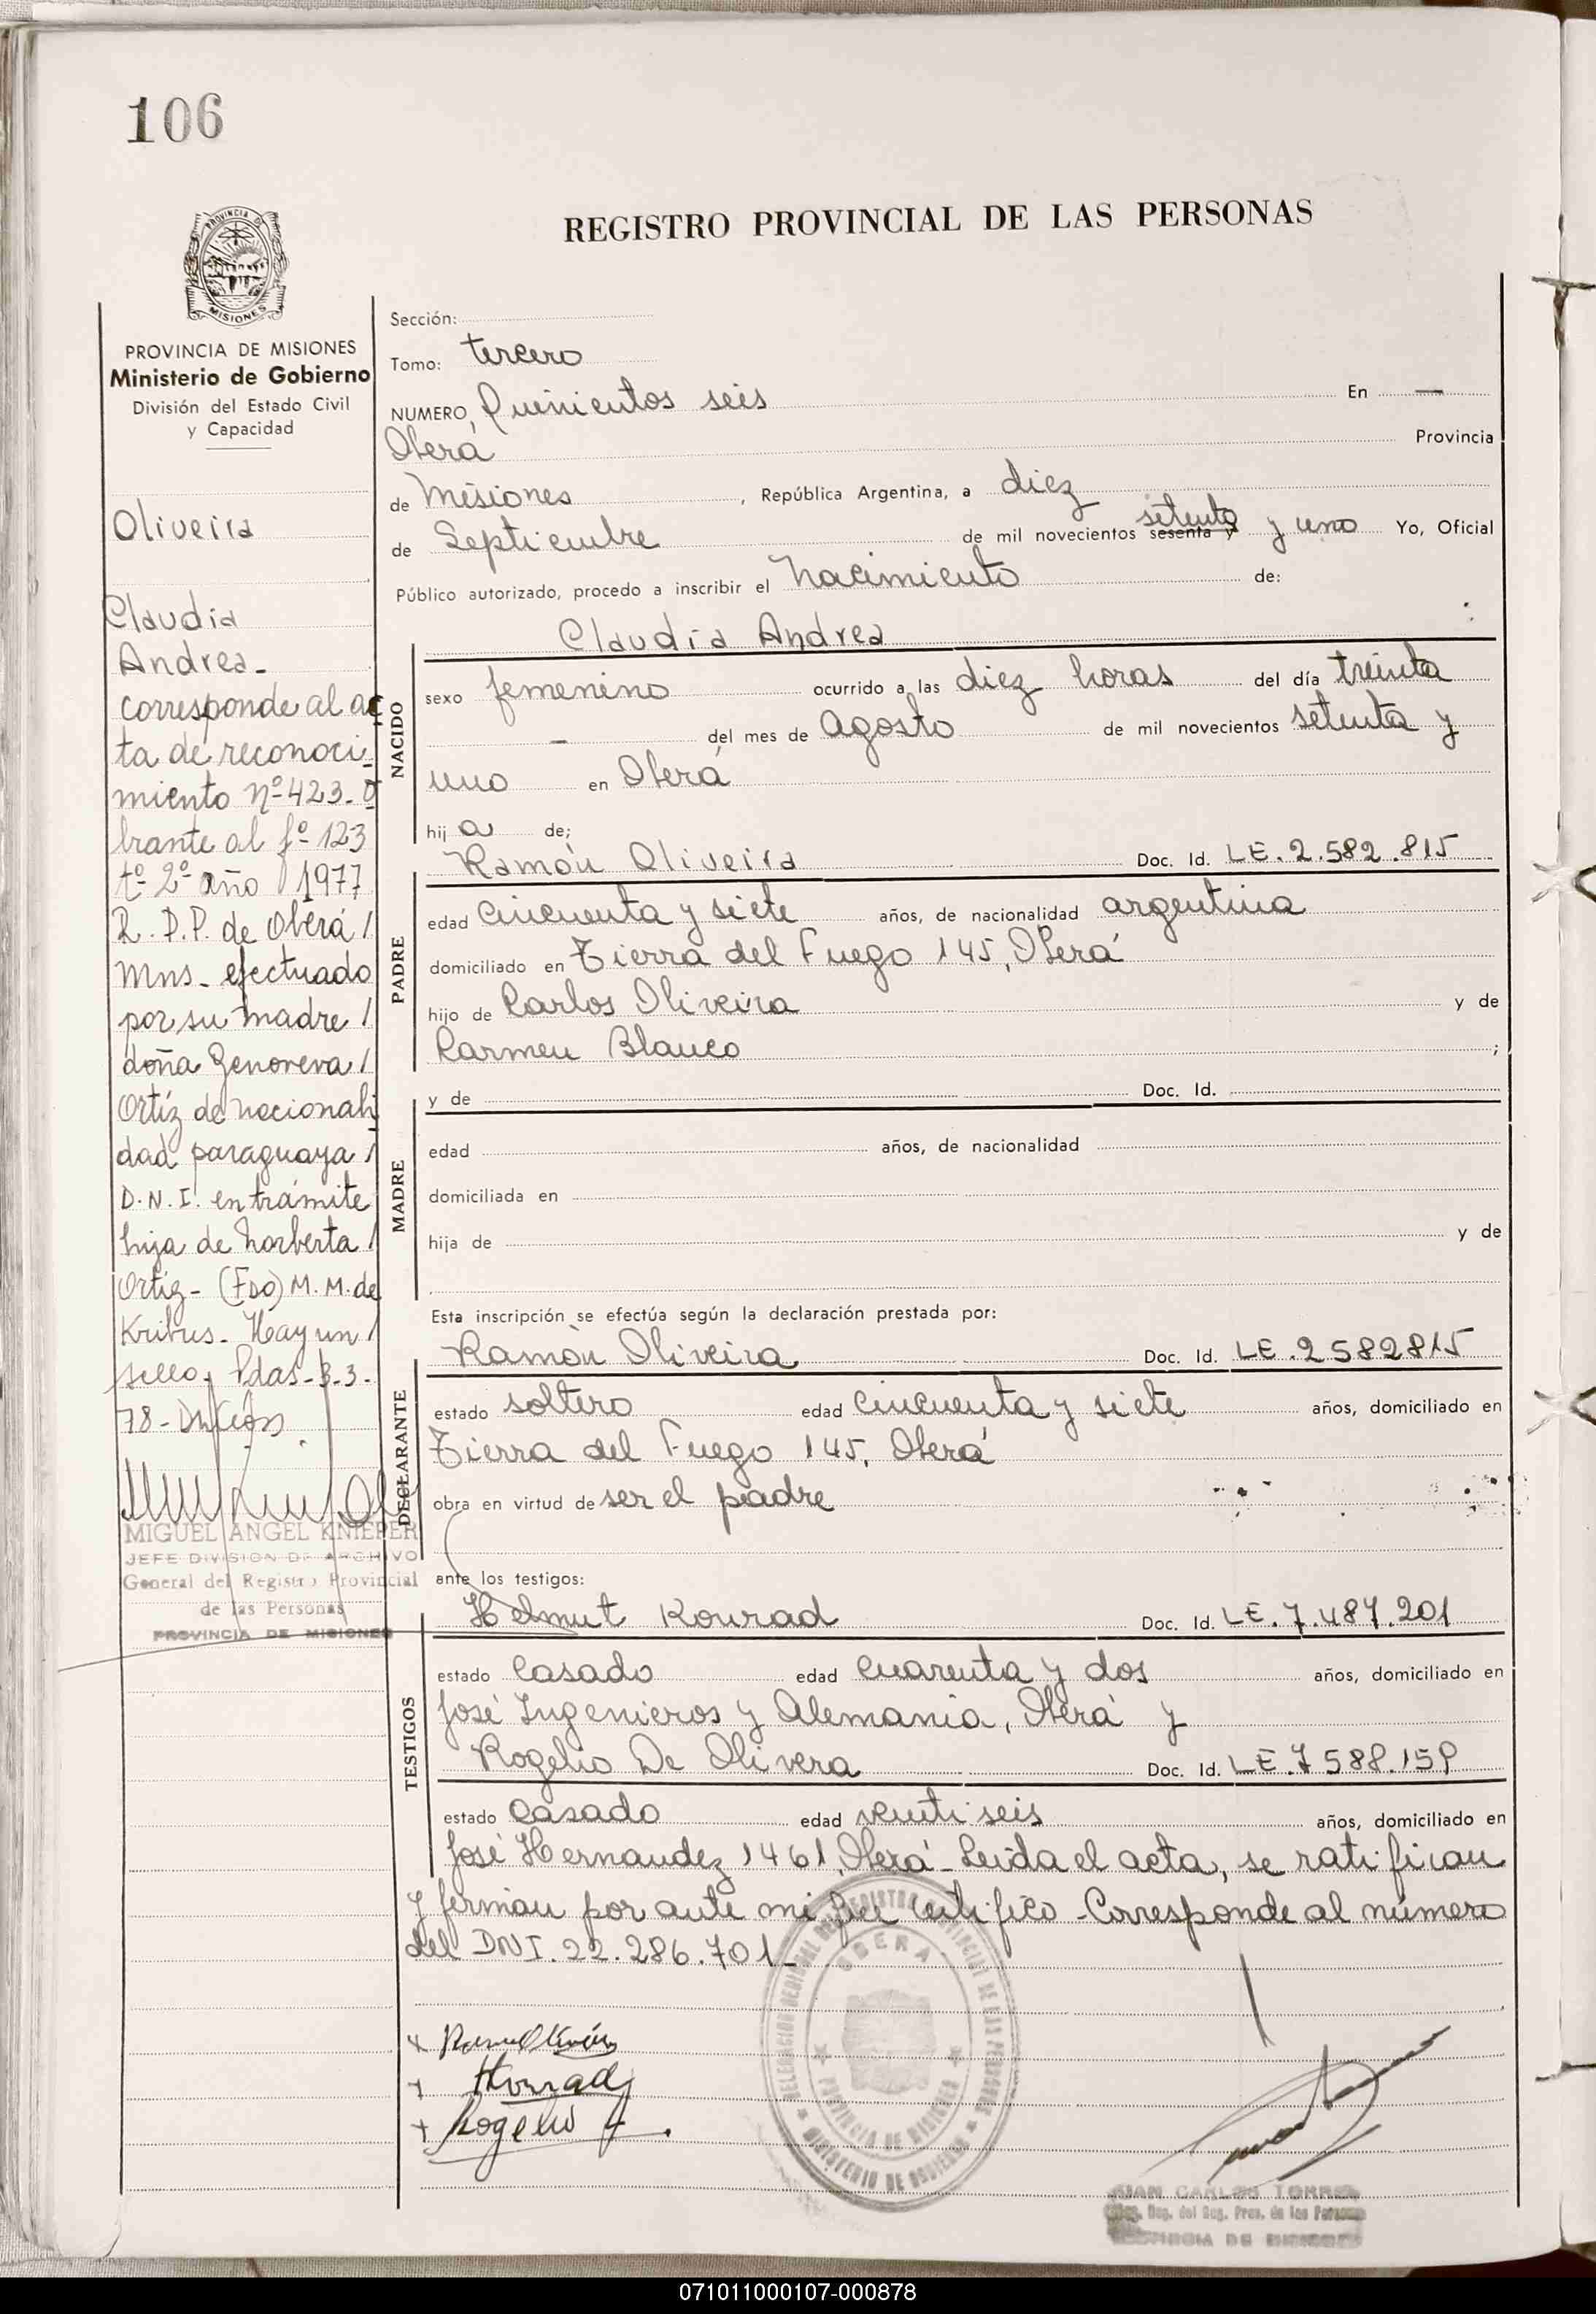 106
REGISTRO PROVINCIAL DE LAS PERSONAS
PROVINCIA DE MISIONES
PROVINCIA DE MISIONES
Ministerio de Gobierno
División del Estado Civil
y Capacidad
Oliveira
Claudia
Andrea-
corresponde al ac
ta de reconoci-
miento nº 423-o
brante al fº 123
tº 2º año 1977
R.P.P. de Oberá/
Mns- efectuado
por su madre/
doña Genoveva/
Ortíz de nacionali
dad paraguaya/
D.N.I. en trámite
hija de Norberta/
Ortíz- (Fdo) M.M. de
Kribus- Hay un/
sello, Pdas-3-3-
78-
MIGUEL ANGEL KNIEPER
JEFE DIVISION DE ARCHIVO
General del Registro Provincial
de las Personas
PROVINCIA DE MISIONES
Sección:
Tomo: tercero
NUMERO, Quinientos seis En —
Oberá Provincia
de Misiones, República Argentina, a diez
de Septiembre de mil novecientos sesenta y setenta y uno Yo, Oficial
Público autorizado, procedo a inscribir el Nacimiento de:
Claudia Andrea
NACIDO
sexo femenino ocurrido a las diez horas del día treinta
— del mes de Agosto de mil novecientos setenta y
uno en Oberá
hij a de;
Ramón Oliveira Doc. Id. LE.2.582.815
PADRE
edad cincuenta y siete años, de nacionalidad argentina
domiciliado en Tierra del Fuego 145, Oberá
hijo de Carlos Oliveira y de
Carmen Blanco ;
MADRE
y de Doc. Id.
edad años, de nacionalidad
domiciliada en
hija de y de
Esta inscripción se efectúa según la declaración prestada por:
Ramón Oliveira Doc. Id. LE.2582815
DECLARANTE
estado soltero edad cincuenta y siete años, domiciliado en
Tierra del Fuego 145, Oberá
obra en virtud de ser el padre
ante los testigos:
TESTIGOS
Helmut Konrad Doc. Id. LE.7.487.201
estado casado edad cuarenta y dos años, domiciliado en
José Ingenieros y Alemania, Oberá y
Rogelio De Olivera Doc. Id. LE.7588.159
estado casado edad veinti seis años, domiciliado en
José Hernandez 1461, Oberá- Leida el acta, se ratifican
y firman por ante mi que certifico - Corresponde al número
del DNI.22.286.701-
OBERA
PROVINCIA DE MISIONES
MINISTERIO DE GOBIERNO
Konrad
Rogelio
JUAN CARLOS TORRES
071011000107-000878